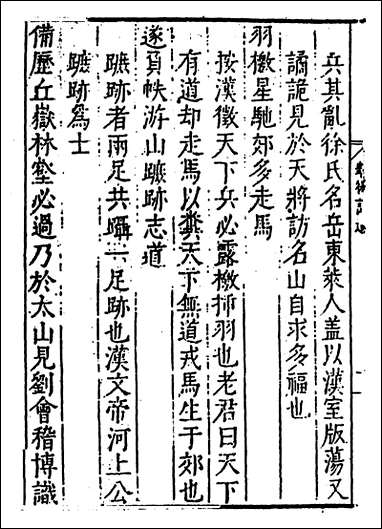 兵其亂徐氏名岳東萊人蓋以漢室版蕩又
譎詭見於天將訪名山自求多福也
羽檄星馳郊多走馬
按漢徵天下兵必露檄插羽也老君曰天下
有道却走馬以糞天下無道戎馬生于郊也
遂負帙游山蹠跡志道
蹠跡者兩足共躡一足跡也漢文帝河上公
蹠跡爲士
備歷丘嶽林壑必過乃於太山見劉會稽博識